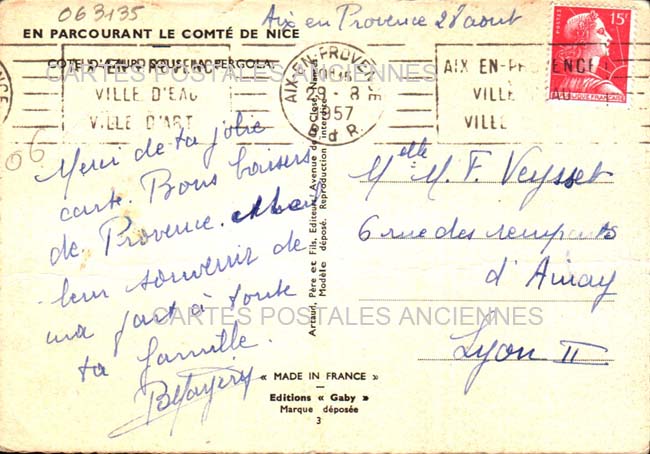 063135
Aix en Provence 28 août
EN PARCOURANT LE COMTÉ DE NICE
COTE D'AZUR SOUS
PERGOLA
CARTES POSTALES ANCIENNES
AIX-EN-PROVENCE
VILLE D'EAU
VILLE D'ART
AIX-EN-PROVENCE
29-8
1957
B. du R.
AIX EN-PROVENCE
VILLE
VILLE
POSTES
15F
RÉPUBLIQUE FRANÇAISE
06
Merci de ta jolie
carte. Bons baisers
de Provence.
souvenir de
ma part à toute
ta famille.
Artaud, Père et Fils, Editeurs, Avenue de La Close, Nantes
Modèle déposé. Reproduction interdite
Melle M. F. Veysset
6 rue des remparts
d'Ainay
Lyon II
CARTES POSTALES ANCIENNES
« MADE IN FRANCE »
Editions « Gaby »
Marque déposée
3